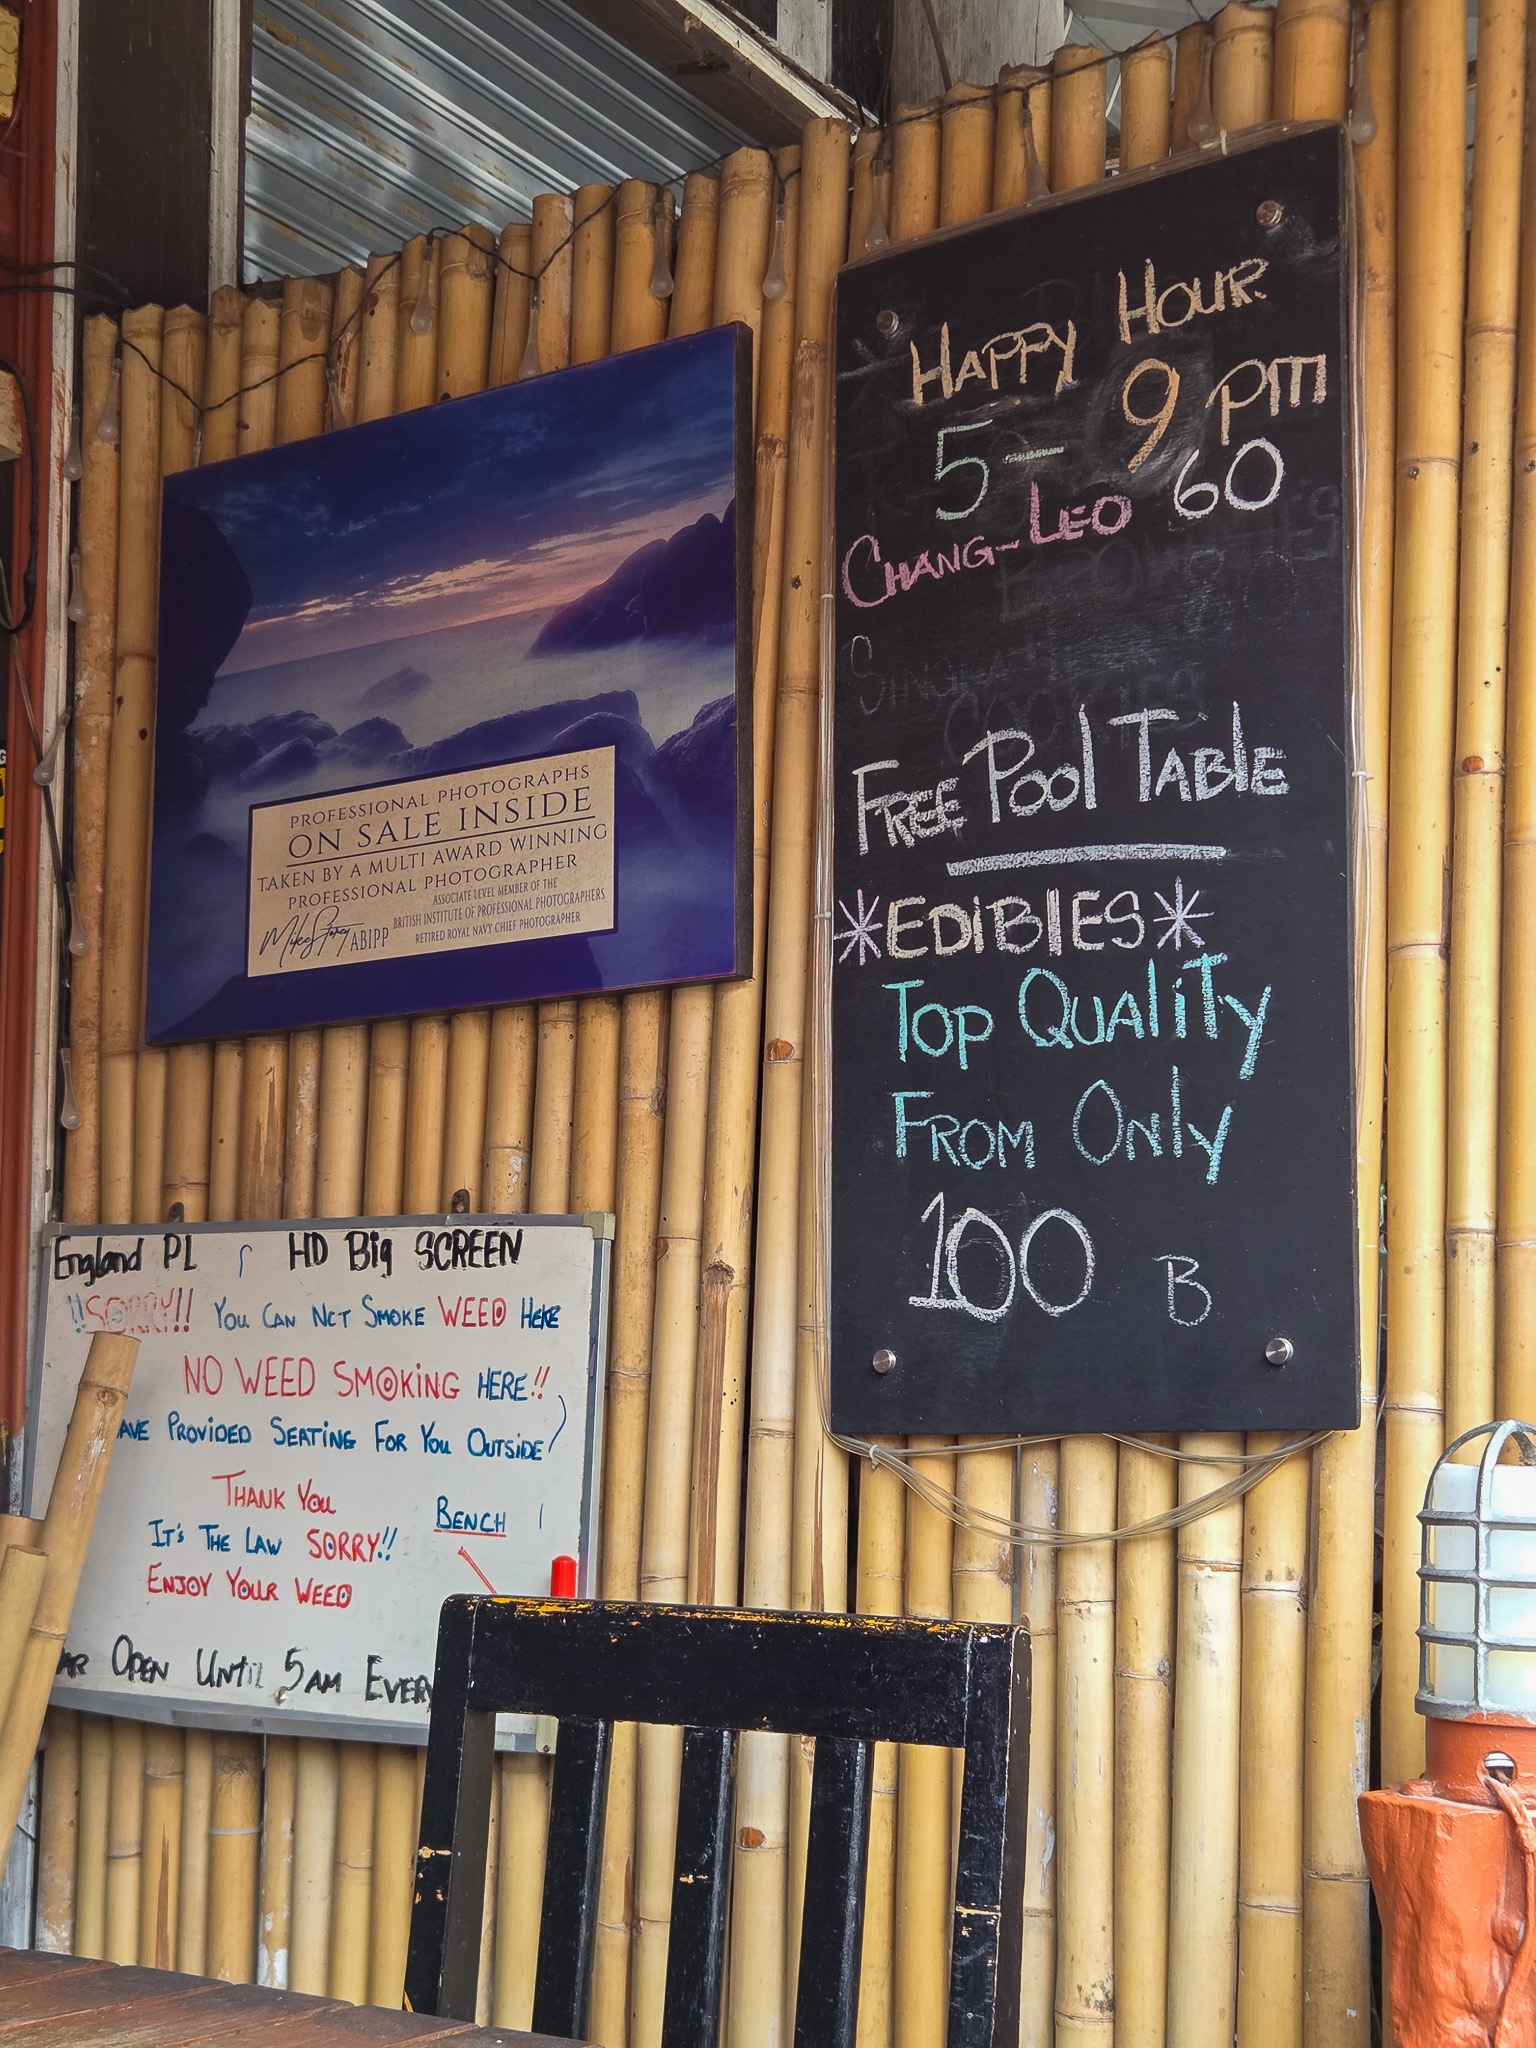 PROFESSIONAL PHOTOGRAPHS
ON SALE INSIDE
TAKEN BY A MULTI AWARD WINNING
PROFESSIONAL PHOTOGRAPHER
ASSOCIATE LEVEL MEMBER OF THE
BRITISH INSTITUTE OF PROFESSIONAL PHOTOGRAPHERS
RETIRED ROYAL NAVY CHIEF PHOTOGRAPHER
ABIPP
HAPPY HOUR
5-9 PM
CHANG-LEO 60
FREE POOL TABLE
*EDIBLES*
TOP QUALITY
FROM ONLY
100 B
England PL HD Big SCREEN
!!SORRY!! YOU CAN NOT SMOKE WEED HERE
NO WEED SMOKING HERE!!
AVE PROVIDED SEATING FOR YOU OUTSIDE
THANK YOU
BENCH
IT'S THE LAW SORRY!!
ENJOY YOUR WEED
AR OPEN UNTIL 5AM EVERY